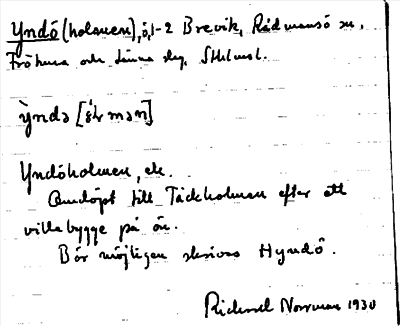 Yndö (holmen), ö, 1-2 Brevik, Rådmansö sn,
Fröhuna och Länna slg, Sthlmsl.
ỳndə [ər mən]
Yndöholmen, ek.
Omdöpt till Täckholmen efter ett
villabygge på ön.
Bör möjligen skrivas Hyndö.
Rickard Norrman 1930